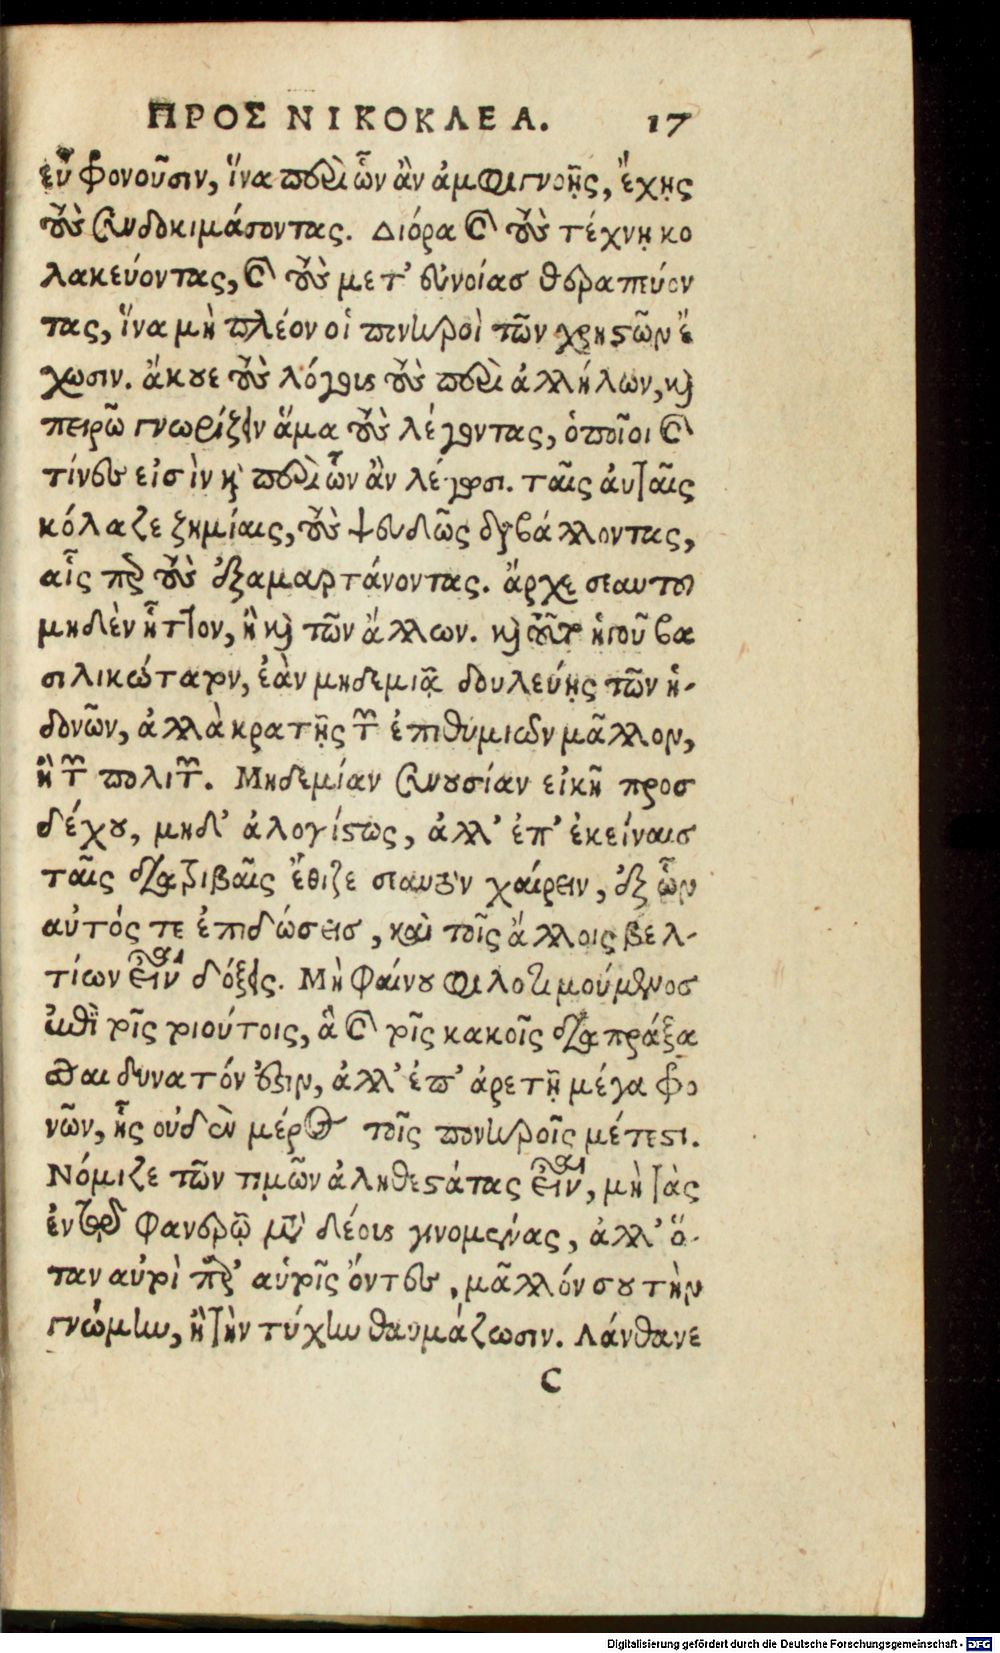 ΠΡΟΣ ΝΙΚΟΚΛΕΑ. 17
εὖ φρονοῦσιν, ἵνα περὶ ὧν ἂν ἀμφιγνοῇς, ἔχῃς
τοὺς συνδοκιμάσοντας. Διόρα καὶ τοὺς τέχνῃ κο
λακεύοντας, καὶ τοὺς μετ' εὐνοίας θεραπεύον
τας, ἵνα μὴ πλέον οἱ πονηροὶ τῶν χρηστῶν ἔ
χωσιν. ἄκουε τοὺς λόγους τοὺς περὶ ἀλλήλων, καὶ
πειρῶ γνωρίζειν ἅμα τοὺς λέγοντας, ὁποῖοί καὶ
τίνες εἰσὶν καὶ περὶ ὧν ἂν λέγωσι. ταῖς αὐταῖς
κόλαζε ζημίαις, τοὺς ψευδῶς διαβάλλοντας,
αἷς περ τοὺς ἐξαμαρτάνοντας. ἄρχε σεαυτοῦ
μηδὲν ἧττον, ἢ καὶ τῶν ἄλλων. καὶ τοῦτο ἡγοῦ βα
σιλικώτατον, ἐὰν μηδεμιᾷ δουλεύῃς τῶν ἡ-
δονῶν, ἀλλὰ κρατῇς τῶν ἐπιθυμιῶν μᾶλλον,
ἢ τῶν πολιτῶν. Μηδεμίαν συνουσίαν εἰκῆ προσ
δέχου, μηδ' ἀλογίστως, ἀλλ' ἐπ' ἐκείναις
ταῖς διατριβαῖς ἔθιζε σεαυτὸν χαίρειν, ἐξ ὧν
αὐτός τε ἐπιδώσεις, καὶ τοῖς ἄλλοις βελ-
τίων εἶναι δόξεις. Μὴ φαίνου φιλοτιμούμενος
ἐπὶ τοῖς τοιούτοις, ἃ καὶ τοῖς κακοῖς διαπράξα
σθαι δυνατόν ἐστιν, ἀλλ' ἐπ' ἀρετῇ μέγα φρο
νῶν, ἧς οὐδὲν μέρος τοῖς πονηροῖς μέτεστι.
Νόμιζε τῶν τιμῶν ἀληθεστάτας εἶναι, μὴ τὰς
ἐν τῷ φανερῷ μετὰ δέους γινομένας, ἀλλ' ὅ-
ταν αὐτοὶ παρ' αὑτοῖς ὄντες, μᾶλλόν σου τὴν
γνώμην, ἢ τὴν τύχην θαυμάζωσιν. Λάνθανε
C
Digitalisierung gefördert durch die Deutsche Forschungsgemeinschaft - DFG